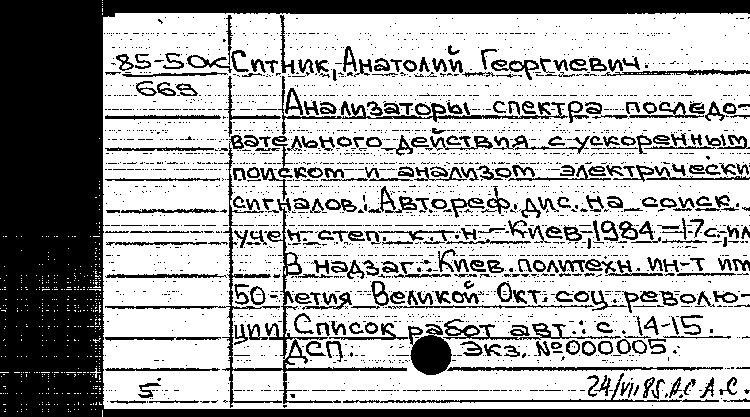 85-50к Ситник, Анатолий Георгиевич.
668
Анализаторы спектра последо-
вательного действия с ускоренным
поиском и анализом электрически
сигналов: Автореф. дис. на соиск.
учен. степ. к.т.н. - Киев, 1984. - 17с., ил
В надзаг.: Киев. политехн. ин-т им
50-летия Великой Окт. соц. револю-
ции. Список работ авт.: с. 14-15.
ДСП. Экз. №000005.
24/VI 85. А.С.